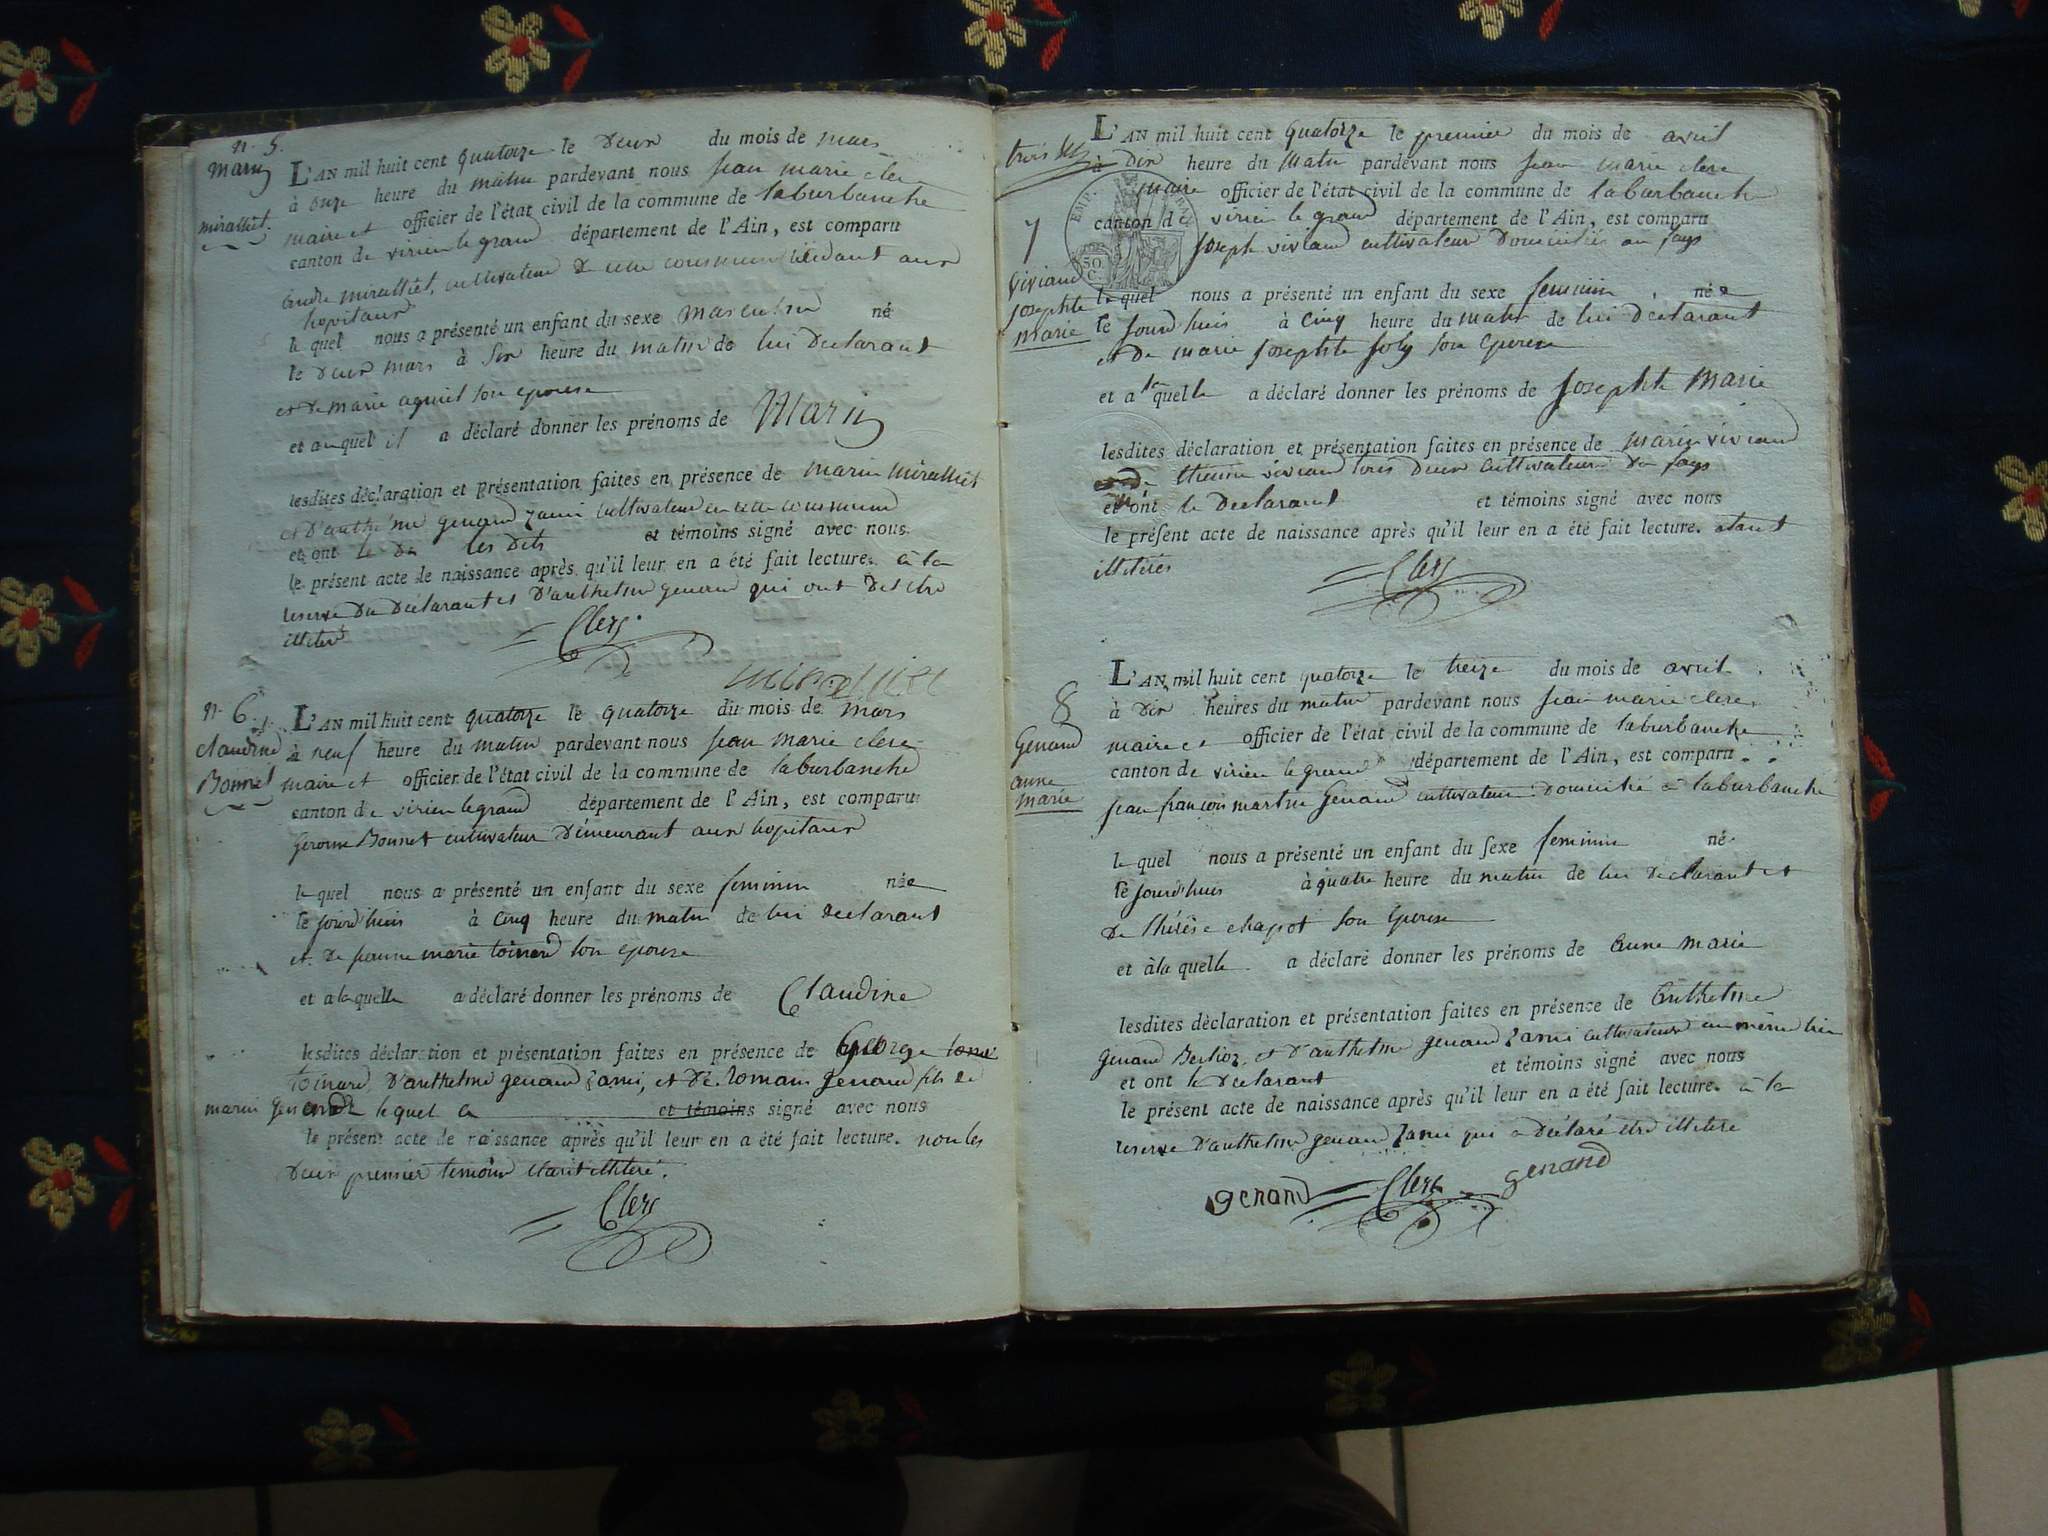 n. 5.
Marin
miralliet.
L'AN mil huit cent quatorze le Deux du mois de mars
à onze heure du matin pardevant nous Jean marie clerc
maire et officier de l'état civil de la commune de laburbanche
canton de virieu le grand département de l'Ain, est comparu
andré miralliet, cultivateur de cette commune résidant aux
hopitaux
le quel nous a présenté un enfant du sexe masculin né
le deux mars à six heure du matin de lui Déclarant
et de marie aguiet son epouse
et auquel il a déclaré donner les prénoms de Marin
lesdites déclaration et présentation faites en présence de marin miralliet
et d'anthelme genand zami cultivateur en cette commune
et ont les dits et témoins signé avec nous
le présent acte de naissance après qu'il leur en a été fait lecture. à la
reserve du déclarant et d'anthelme genand qui ont dit etre
illiteré
Clerc
miralliet
n. 6.
claudine
Bonnet
L'AN mil huit cent quatorze le quatorze du mois de mars
à neuf heure du matin pardevant nous Jean marie clerc
maire et officier de l'état civil de la commune de laburbanche
canton de virieu le grand département de l'Ain, est comparu
Gerome Bonnet cultivateur Démeurant aux hopitaux
le quel nous a présenté un enfant du sexe feminin née
ce jourd'huis à cinq heure du matin de lui declarant
et de jeanne marie toinard son epouse
et a laquelle a déclaré donner les prénoms de Claudine
lesdites déclaration et présentation faites en présence de George
toinard, d'anthelme genand zami, et de romain genand fils de
marin genand lequel a et témoins signé avec nous
le présent acte de naissance après qu'il leur en a été fait lecture. non les
deux premier temoin etant illiteré.
Clerc
trois
L'AN mil huit cent quatorze le premier du mois de avril
à dix heure du matin pardevant nous jean marie clerc
maire officier de l'état civil de la commune de laburbanche
canton de virieu le grand département de l'Ain, est comparu
Joseph viviand cultivateur Domicilié au fays
50
C.
7
viviand
josephte
marie
le quel nous a présenté un enfant du sexe feminin née
ce jourd'huis à cinq heure du matin de lui déclarant
et de marie josephte joly son epouse
et a laquelle a déclaré donner les prénoms de Josephte Marie
lesdites déclaration et présentation faites en présence de marin viviand
viviand tous deux cultivateur du fays
et ont le déclarant et témoins signé avec nous
le présent acte de naissance après qu'il leur en a été fait lecture. etant
illiterés
Clerc
8
Genand
anne
marie
L'AN mil huit cent quatorze le treize du mois de avril
à dix heures du matin pardevant nous jean marie clerc
maire et officier de l'état civil de la commune de laburbanche
canton de virieu le grand département de l'Ain, est comparu
jean françois martin Genand cultivateur Domicilié à laburbanche
le quel nous a présenté un enfant du sexe feminin né
ce jourd'huis à quatre heure du matin de lui déclarant et
de thérèse chapot son epouse
et à la quelle a déclaré donner les prénoms de anne marie
lesdites déclaration et présentation faites en présence de anthelme
genand Berlioz, et d'anthelme genand zami cultivateurs au même lieu
et ont le déclarant et témoins signé avec nous
le présent acte de naissance après qu'il leur en a été fait lecture. à la
reserve d'anthelme genand zami qui a déclaré être illiteré
genand Clerc genand